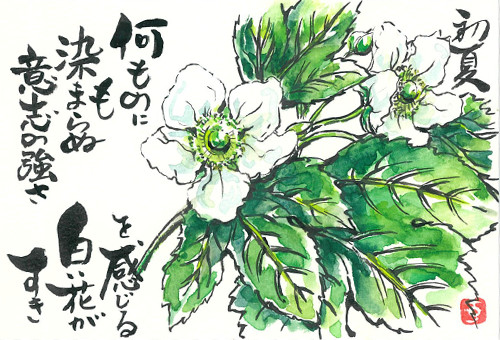 初夏
何ものに
も
染まらぬ
意志の強さ
を感じる
白い花が
すき